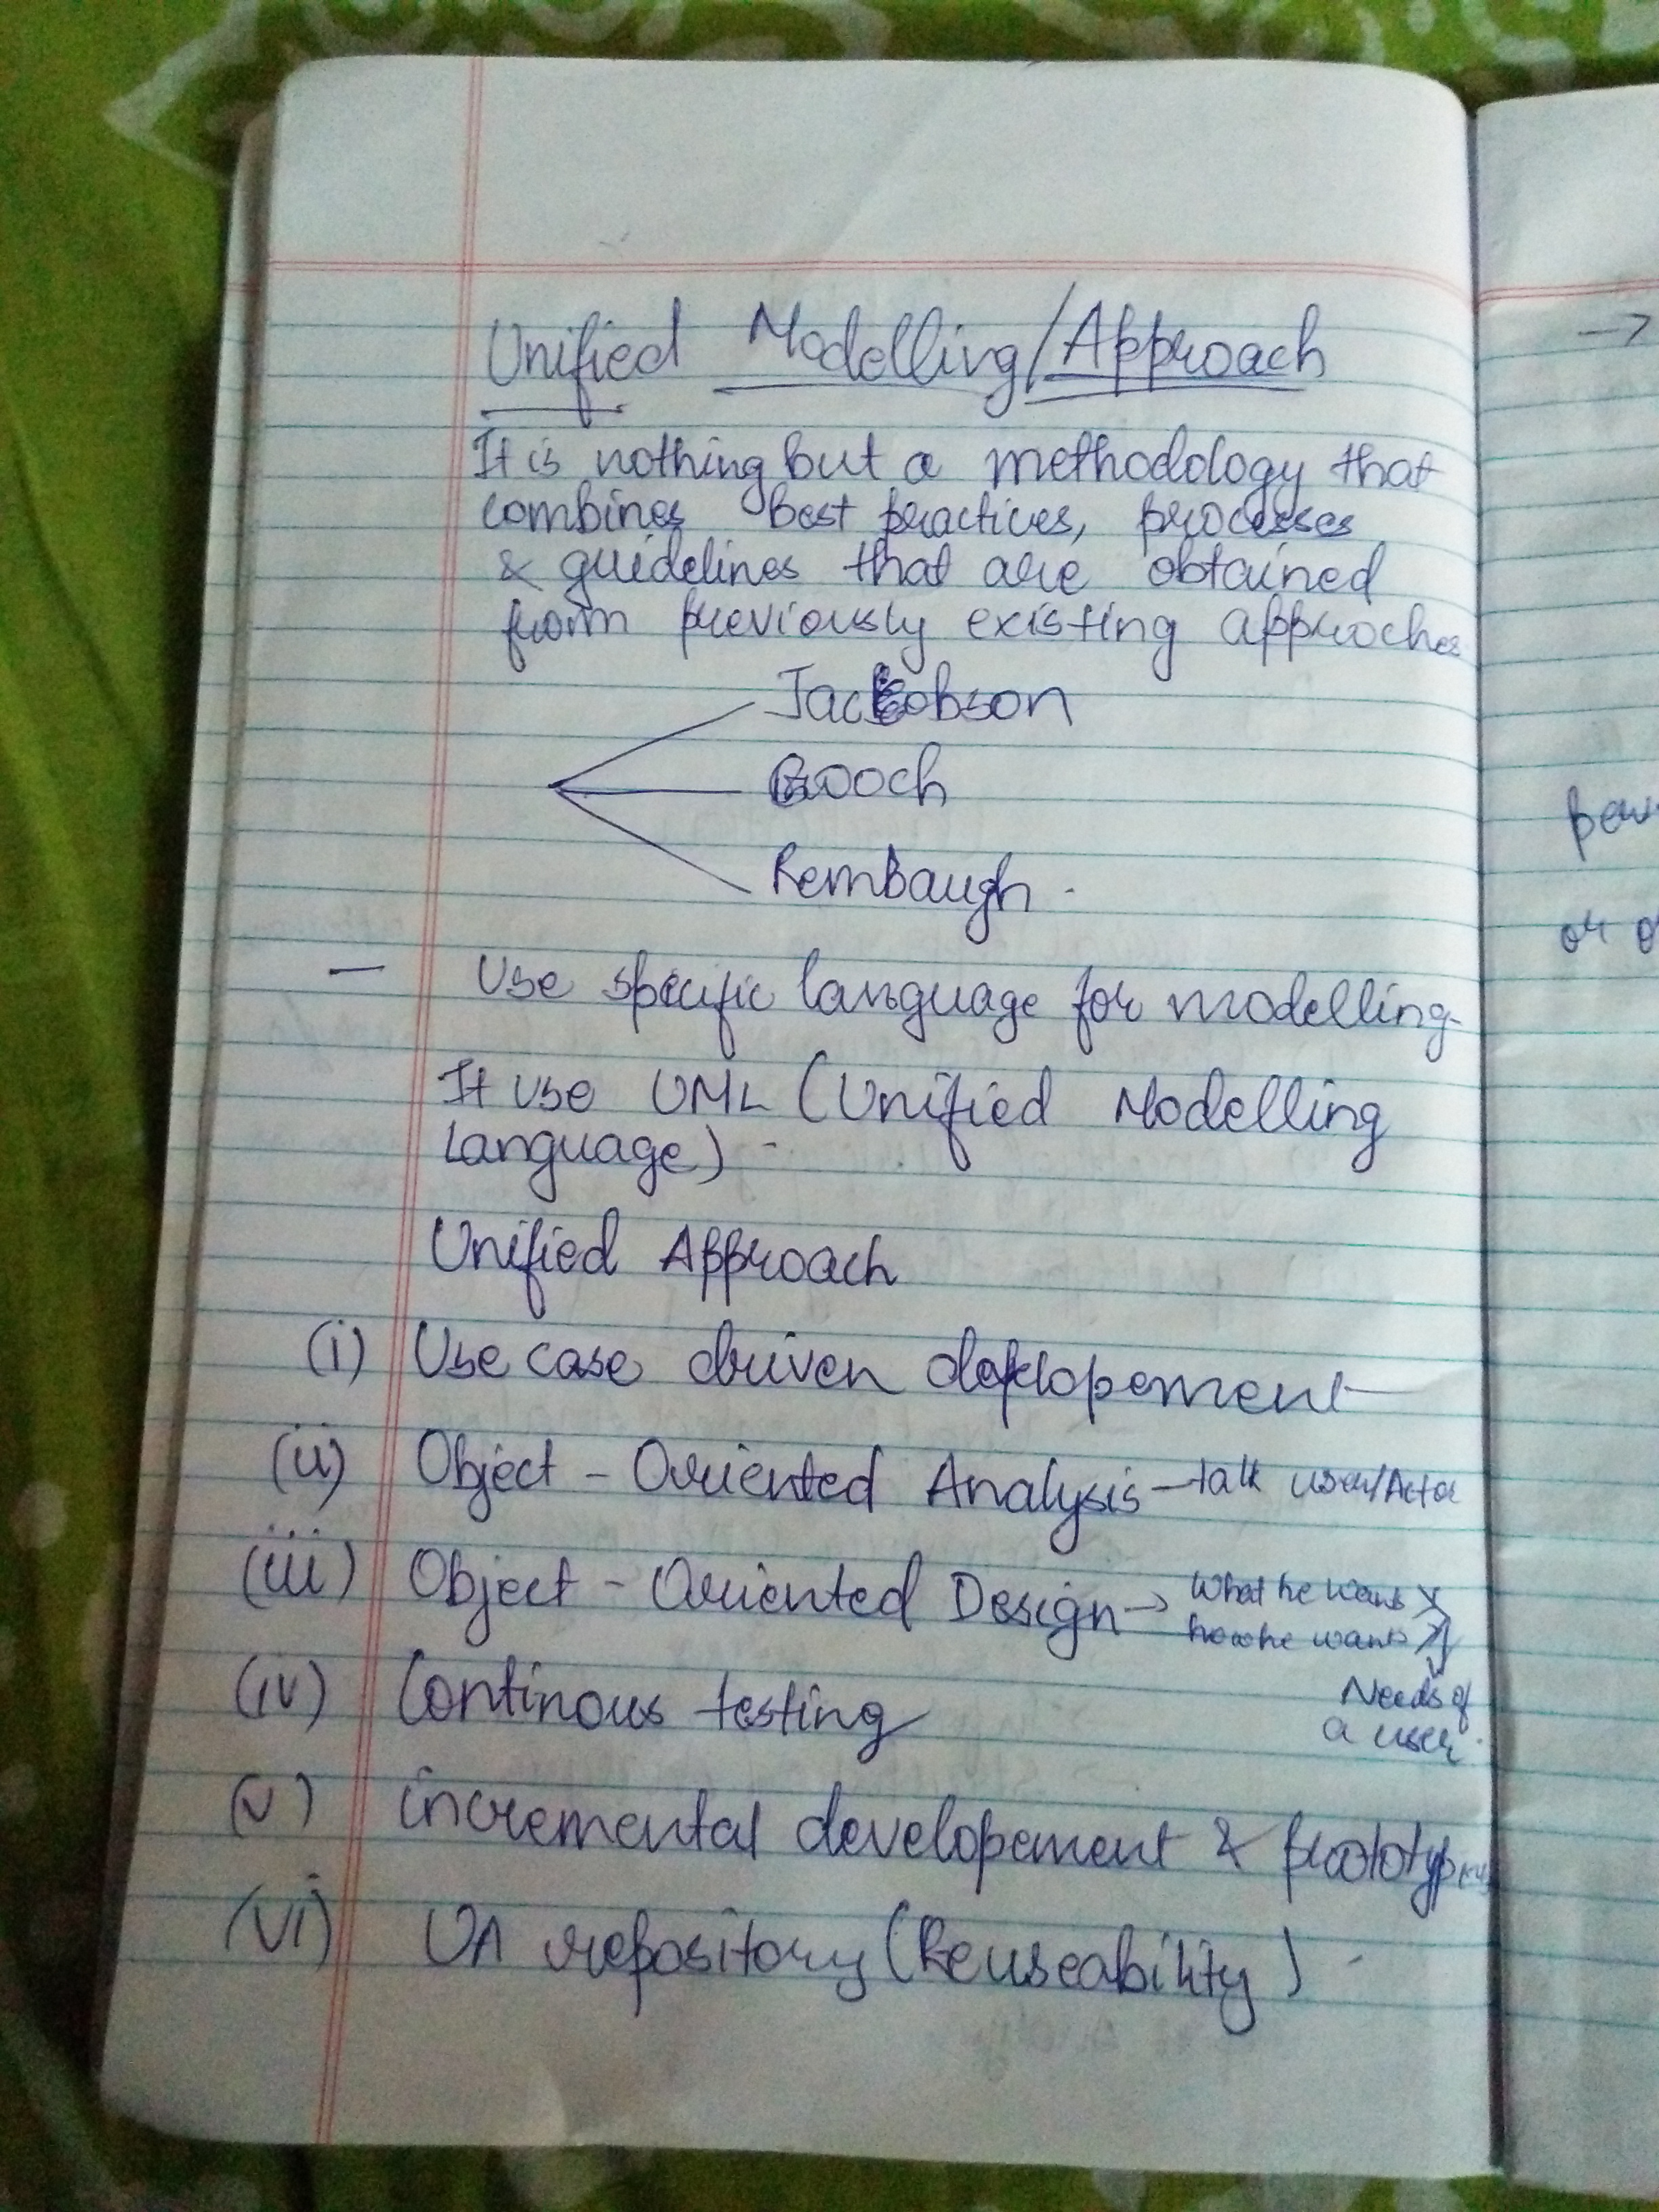 Unified Modelling/Approach
It is nothing but a methodology that
combines best practices, processes
& guidelines that are obtained
from previously existing approches
Jackobson
Booch
Rembaugh.
— Use specific language for modelling.
It use UML (Unified Modelling
Language).
Unified Approach
(i) Use case driven developement
(ii) Object - Oriented Analysis - talk user/Actor
(iii) Object - Oriented Design → What he wants
how he wants
(iv) Continous testing
Needs of
a user.
(v) incremental developement & prototyping
(vi) UA repository (Reuseability).
→
or